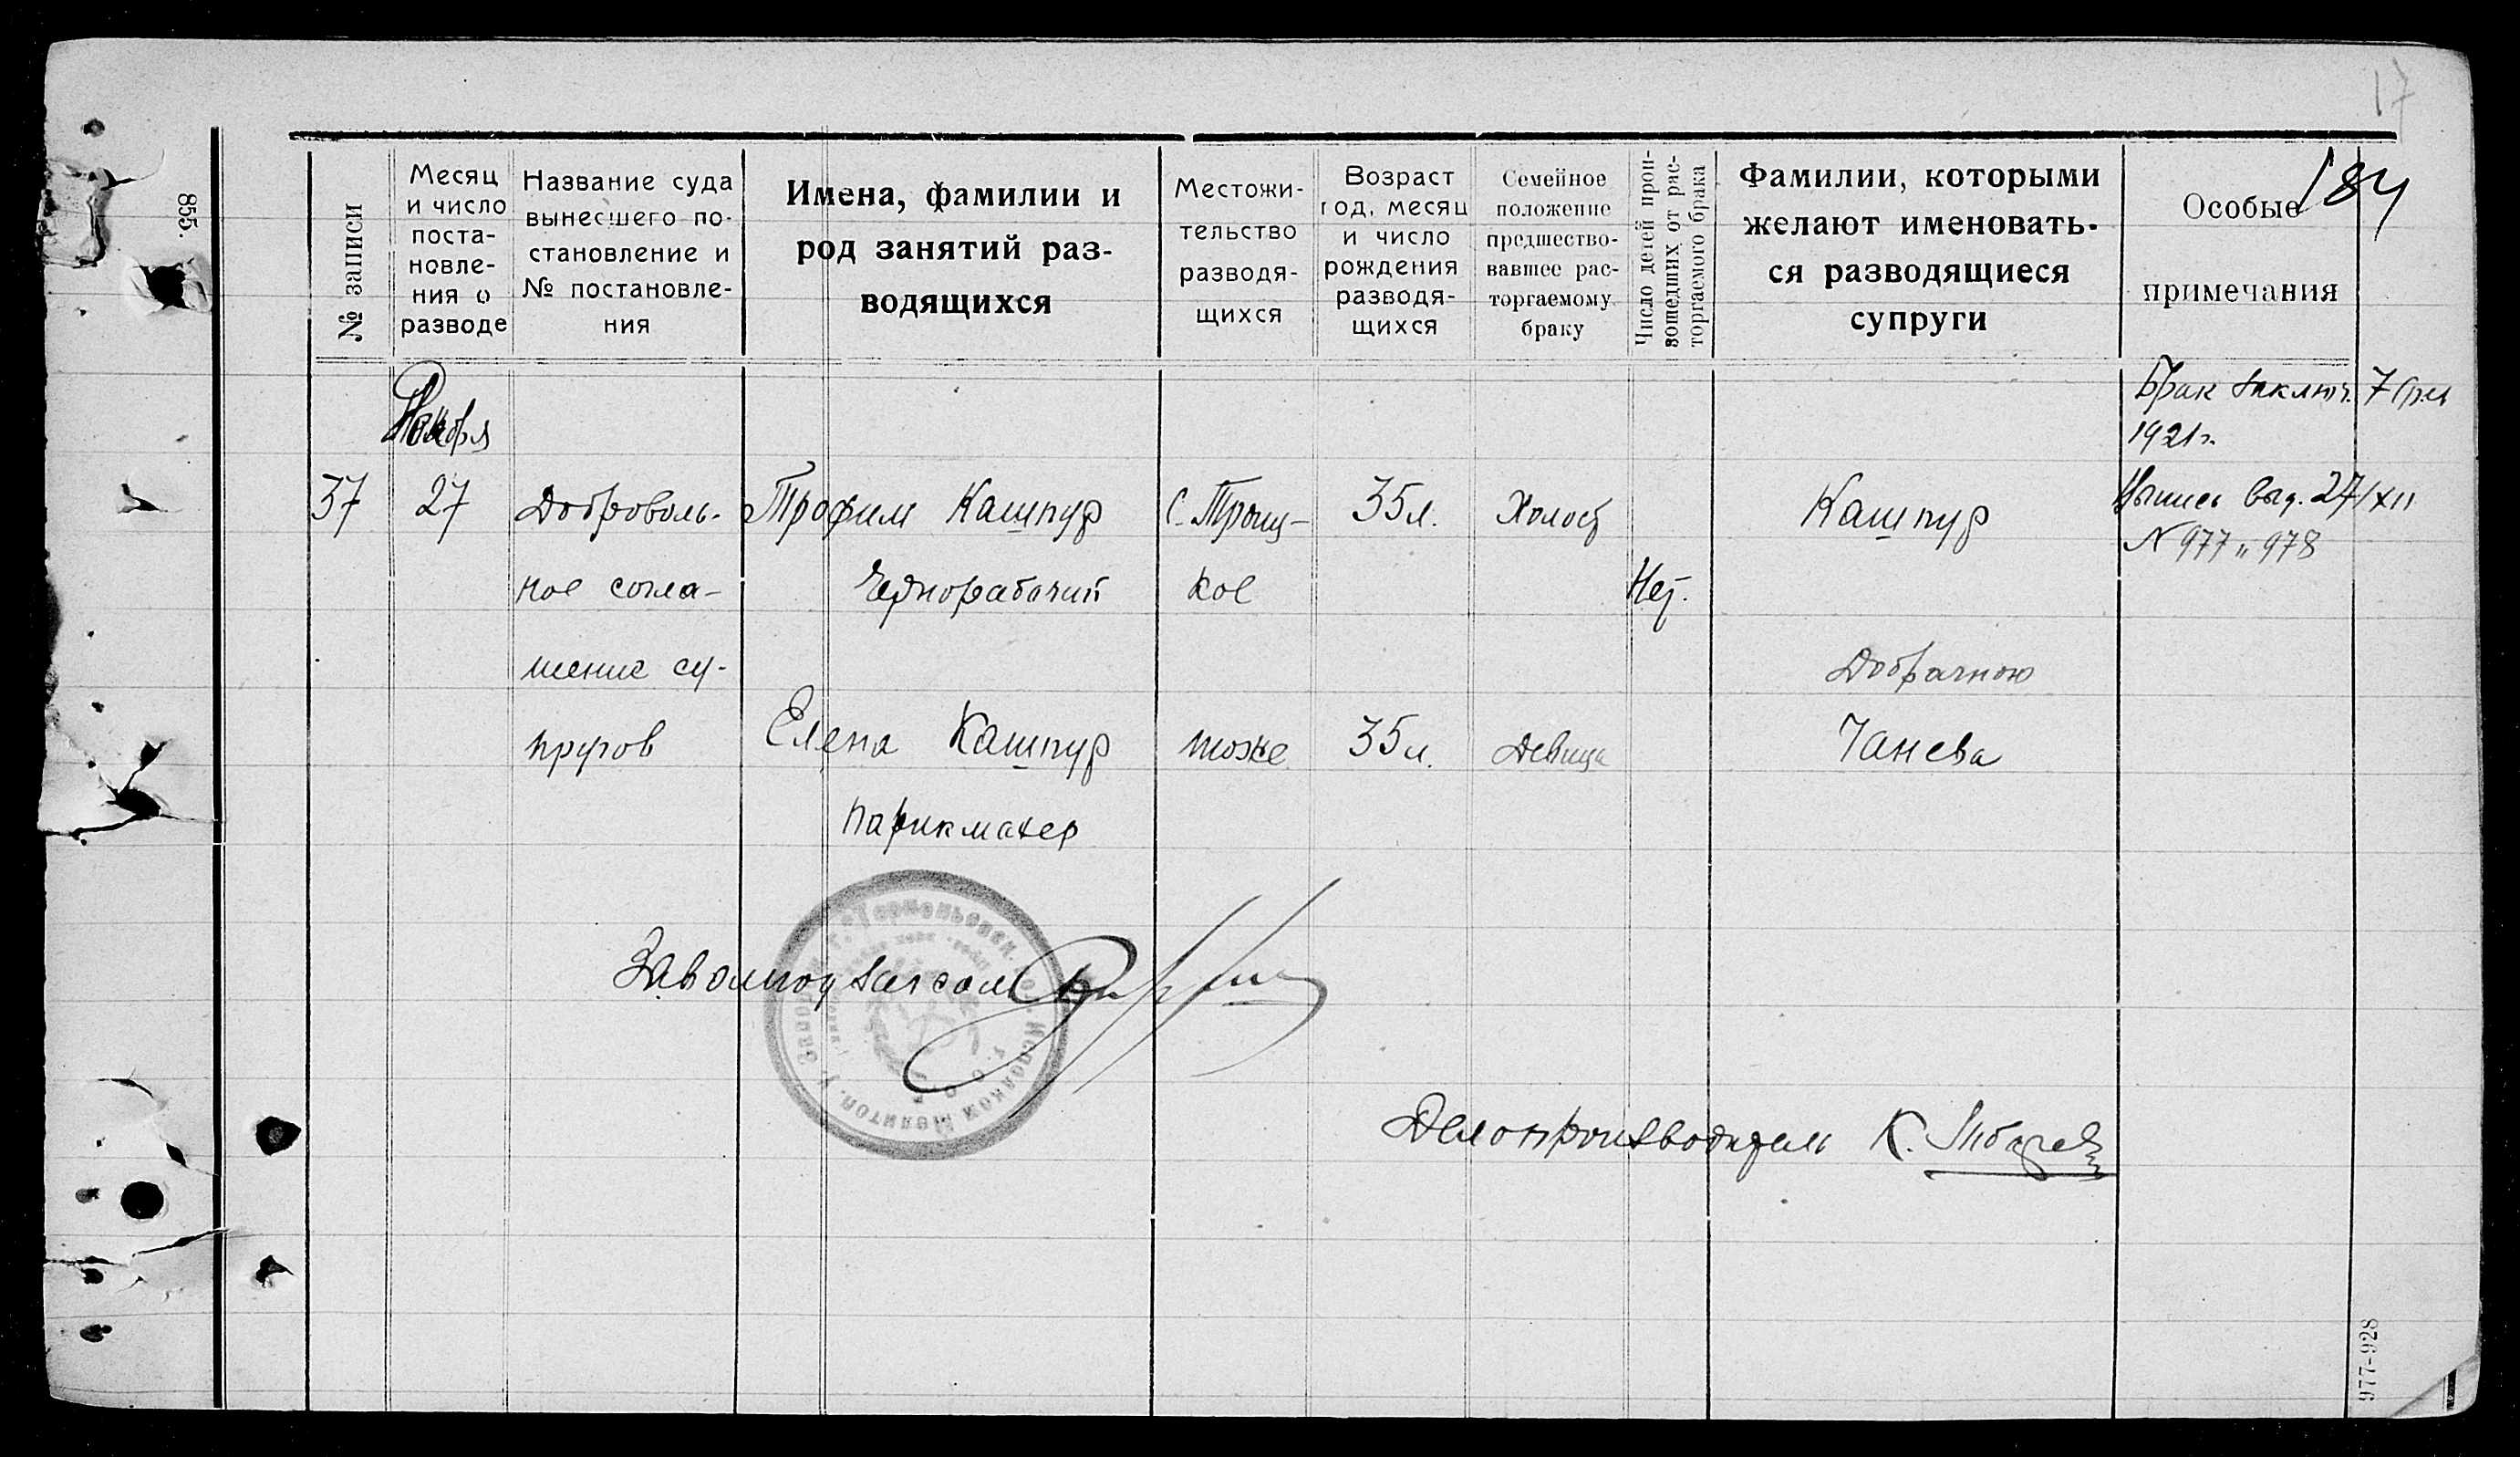 17
184
855.
№ записи
Месяц
и число
поста-
новле-
ния о
разводе
Название суда
вынесшего по-
становление и
№ постановле-
ния
Имена, фамилии и
род занятий раз-
водящихся
Местожи-
тельство
разводя-
щихся
Возраст
год, месяц
и число
рождения
разводя-
щихся
Семейное
положение
предшество-
вавшее рас-
торгаемому
браку
Число детей прои-
зошедших от рас-
торгаемого брака
Фамилии, которыми
желают именовать-
ся разводящиеся
супруги
Особые
примечания
37
27
Доброволь-
ное согла-
шение су-
пругов
Трофим Кашпур
Чернорабочий
Елена Кашпур
парикмахер
с. Троиц-
кое
тоже
35 л.
35 л.
Холост
Девица
Нет.
Кашпур
Добрачною
Чанева
Брак заключ. 7
1921 г.
Выпись выд. 27/XII
N 977 и 978
Завомпод загсом
Делопроизводитель К.
977-928